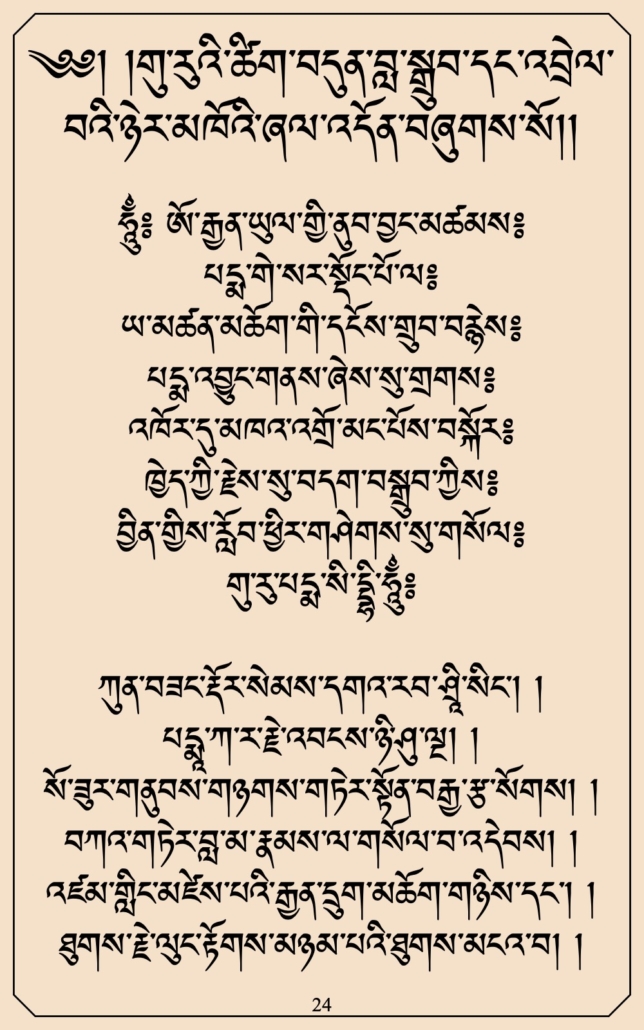 ༄༅། །གུ་རུའི་ཚིག་བདུན་བླ་སྒྲུབ་དང་འབྲེལ་
བའི་ཉེར་མཁོའི་ཞལ་འདོན་བཞུགས་སོ།།
ཧཱུྂ༔ ཨོ་རྒྱན་ཡུལ་གྱི་ནུབ་བྱང་མཚམས༔
པདྨ་གེ་སར་སྡོང་པོ་ལ༔
ཡ་མཚན་མཆོག་གི་དངོས་གྲུབ་བརྙེས༔
པདྨ་འབྱུང་གནས་ཞེས་སུ་གྲགས༔
འཁོར་དུ་མཁའ་འགྲོ་མང་པོས་བསྐོར༔
ཁྱེད་ཀྱི་རྗེས་སུ་བདག་བསྒྲུབ་ཀྱིས༔
བྱིན་གྱིས་རློབ་ཕྱིར་གཤེགས་སུ་གསོལ༔
གུ་རུ་པདྨ་སིདྡྷི་ཧཱུྂ༔
ཀུན་བཟང་རྡོར་སེམས་དགའ་རབ་ཤྲཱི་སིང་། །
པདྨཱ་ཀ་ར་རྗེ་འབངས་ཉི་ཤུ་ལྔ། །
སོ་ཟུར་གནུབས་གཉགས་གཏེར་སྟོན་བརྒྱ་རྩ་སོགས། །
བཀའ་གཏེར་བླ་མ་རྣམས་ལ་གསོལ་བ་འདེབས། །
འཛམ་གླིང་མཛེས་པའི་རྒྱན་དྲུག་མཆོག་གཉིས་དང་། །
ཐུགས་རྗེ་ལུང་རྟོགས་མཉམ་པའི་ཐུགས་མངའ་བ། །
24